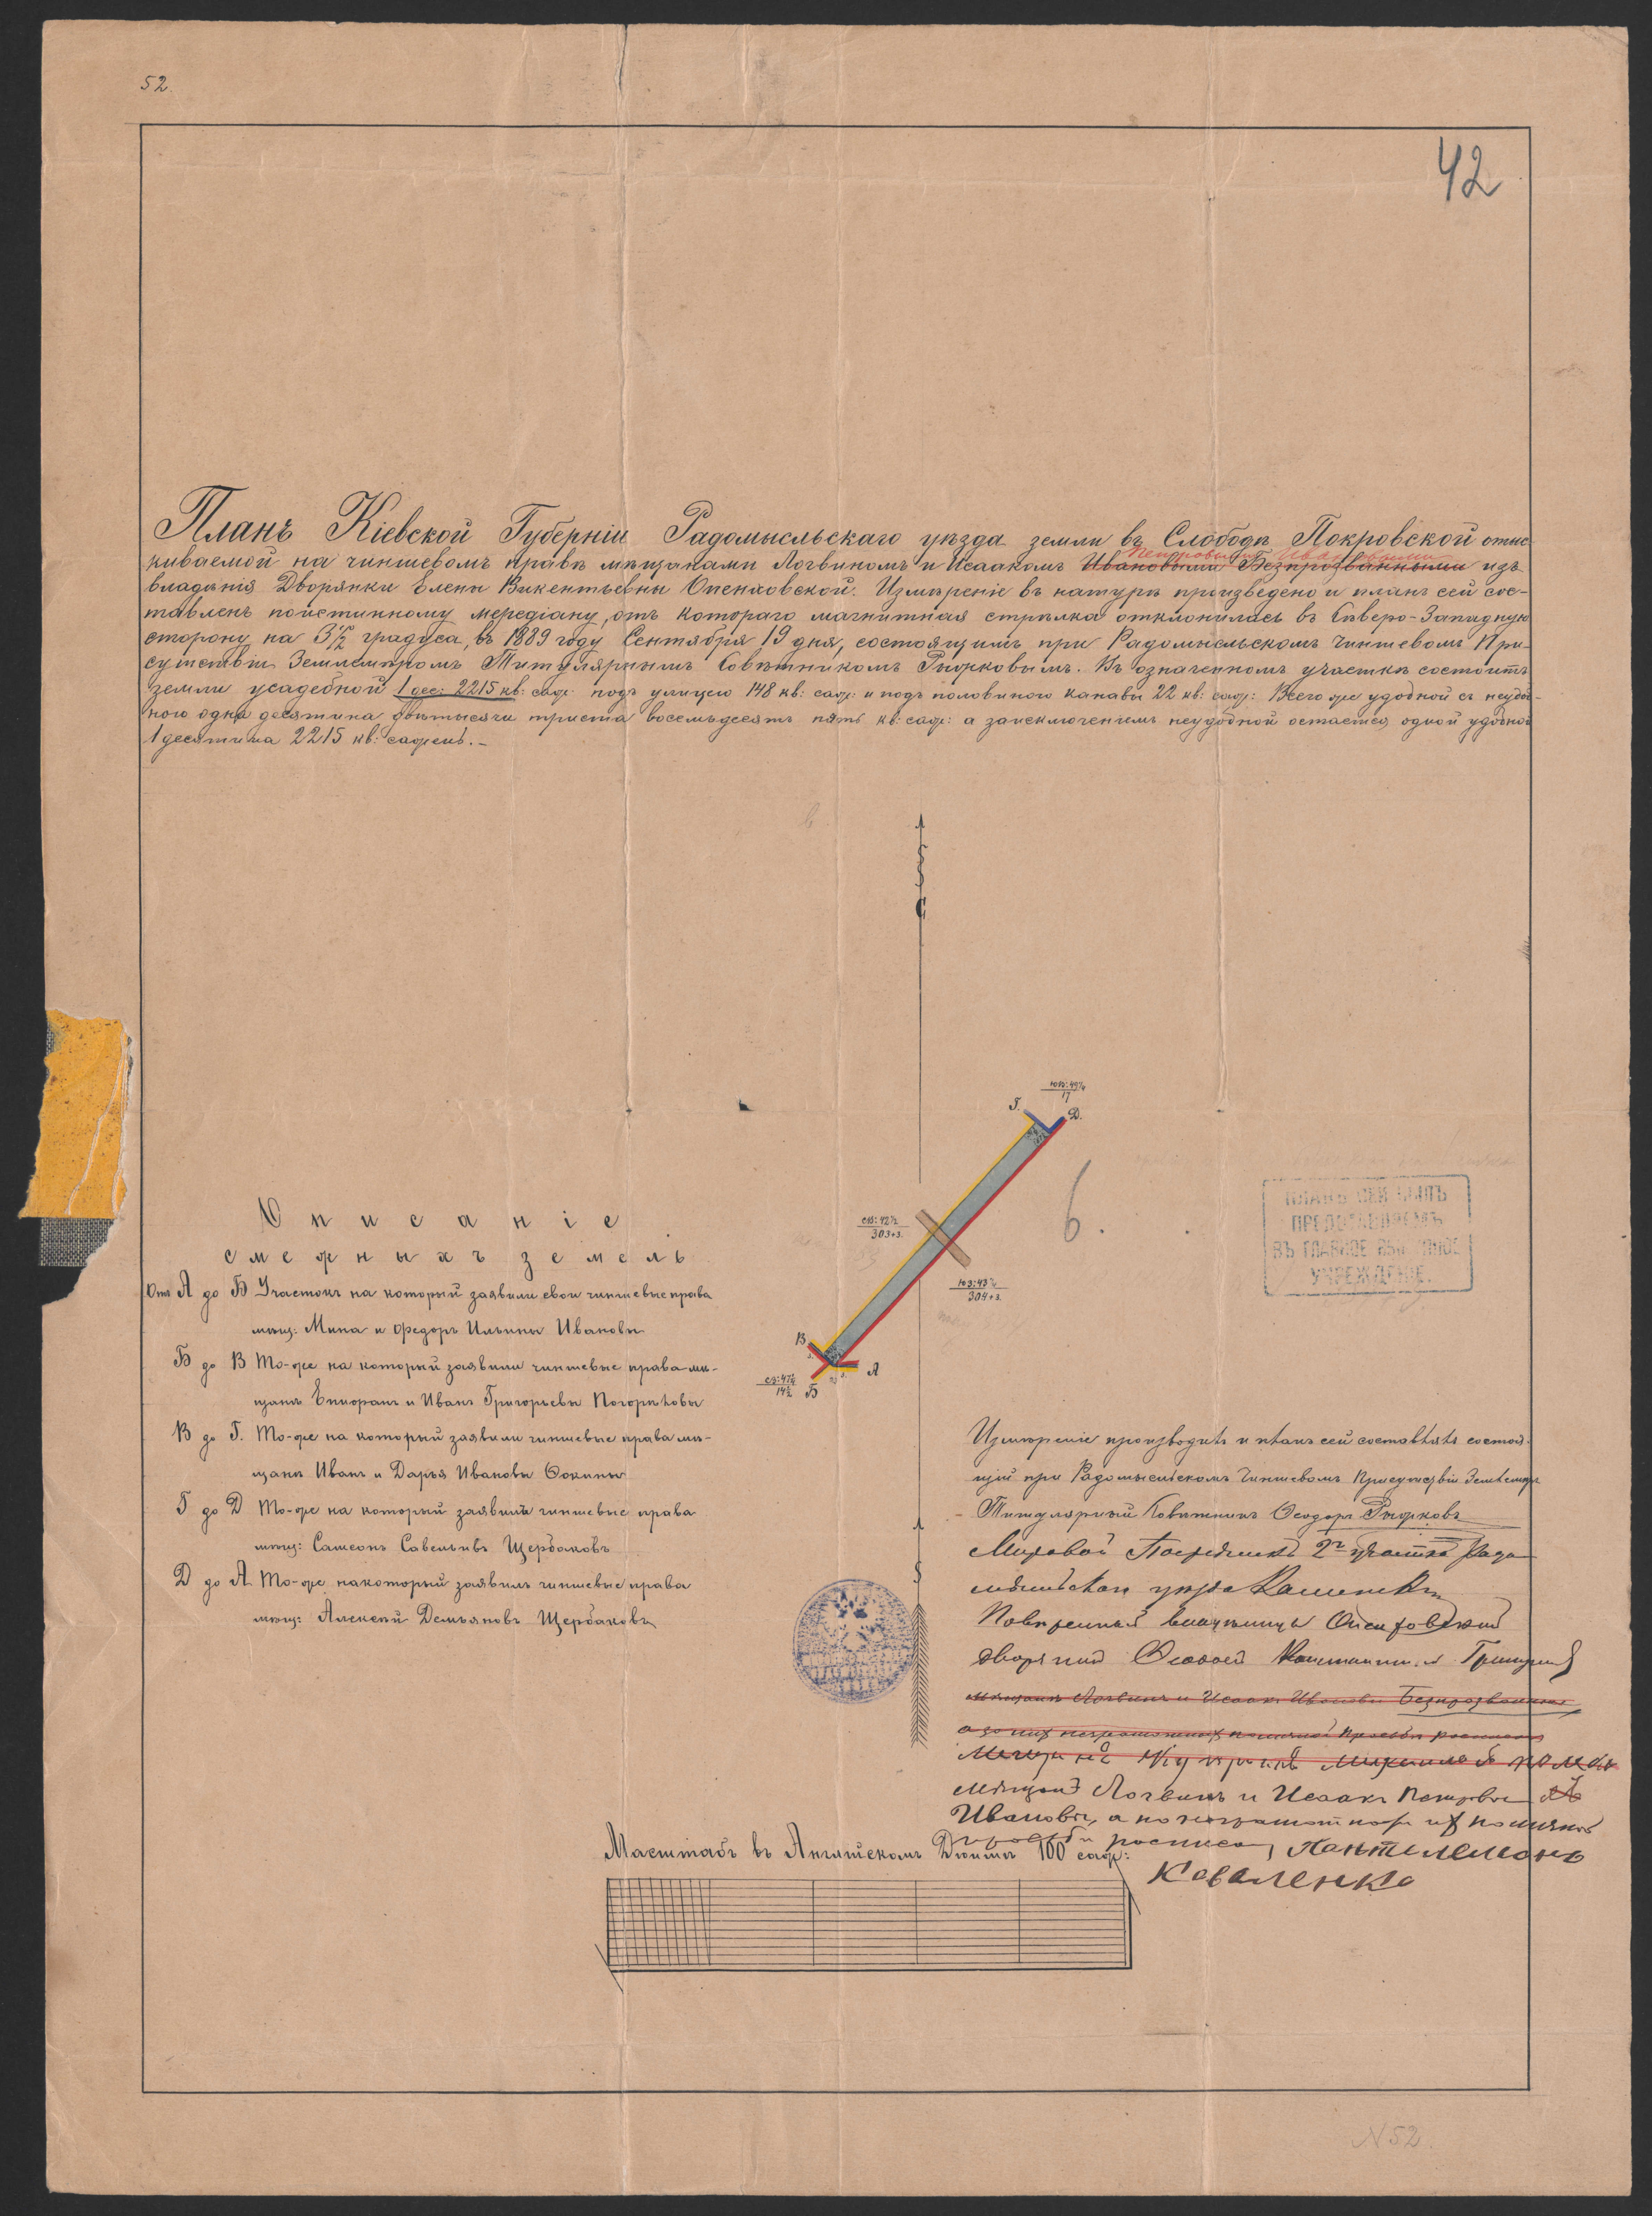 52
42
Планъ Кіевской Губерніи Радомысльскаго уѣзда земли въ Слободѣ Покровской отыс
киваемой на чиншевомъ правѣ мѣщанами Логвиномъ и Исаакомъ Ивановыми Безпрозванными изъ
Петровыми Ивановыми
владѣнія Дворянки Елены Викентьевны Опенховской. Измѣреніе въ натурѣ произведено и планъ сей сос-
тавленъ поистинному мередіану, отъ котораго магнитная стрѣлка отклонилась въ Сѣверо-Западную
сторону на 3 1/2 градуса, въ 1889 году Сентября 19 дня, состоящимъ при Радомысльскомъ Чиншевомъ При-
сутствіи Землемѣромъ Титулярнымъ Совѣтникомъ Рюрковымъ. Въ означенномъ участкѣ состоитъ
земли усадебной 1 дес: 2215 кв: саж: подъ улицею 148 кв: саж: и подъ половиною канавы 22 кв: саж: Всего же удобной съ неудоб-
ною одна десятина двѣтысячи триста восемьдесятъ пять кв: саж: а заисключеніемъ неудобной остается одной удобной
1 десятина 2215 кв: сажень.-
С
ЮВ: 49 1/4
17
Г.
Д.
6.
СВ: 42 1/2
303+3.
ЮЗ: 43 1/4
304+3.
В
А
Б
СЗ: 47 1/4
14 1/2
ПЛАНЪ СЕЙ БЫЛЪ
ПРЕДСТАВЛЯЕМЪ
ВЪ ГЛАВНОЕ ВЫКУПНОЕ
УЧРЕЖДЕНІЕ.
Описаніе
смежныхъ земель
Отъ А до Б Участокъ на который заявили свои чиншевые права
мѣщ: Мина и Федоръ Ильины Ивановы
Б до В То-же на который заявили чиншевые права мѣ-
щане и Иванъ Григорьевы
В до Г. То-же на который заявили чиншевые права мѣ-
щане Иванъ и Дарья Ивановы Фокины
Г до Д То-же на который заявилъ чиншевые права
мѣщ: Самсонъ Савельивъ Щербаковъ
Д до А То-же накоторый заявилъ чиншевые права
мѣщ: Алексѣй Демьяновъ Щербаковъ
Измѣреніе производилъ и планъ сей составлялъ состоя-
щій при Радомысльскомъ Чиншевомъ Присутствіи Землемѣръ
Титулярный Совѣтникъ Ѳеодоръ Рюрковъ
Мировой Посредникъ 2го участка Радо
мысльскаго уѣзда
Повѣренный владѣлицы Опенховской
дворянинъ
мѣщане Логвинъ и Исаакъ Ивановы Безпрозванные
а за нихъ неграмотныхъ по личной просьбѣ росписался
мѣщане Логвинъ и Исаакъ Петровы
Ивановы, а по неграмотности ихъ по личной
просьбѣ росписался Пантелемонъ
Коваленко
Масштабъ въ Англійскомъ Дюймѣ 100 саж:
N 52.